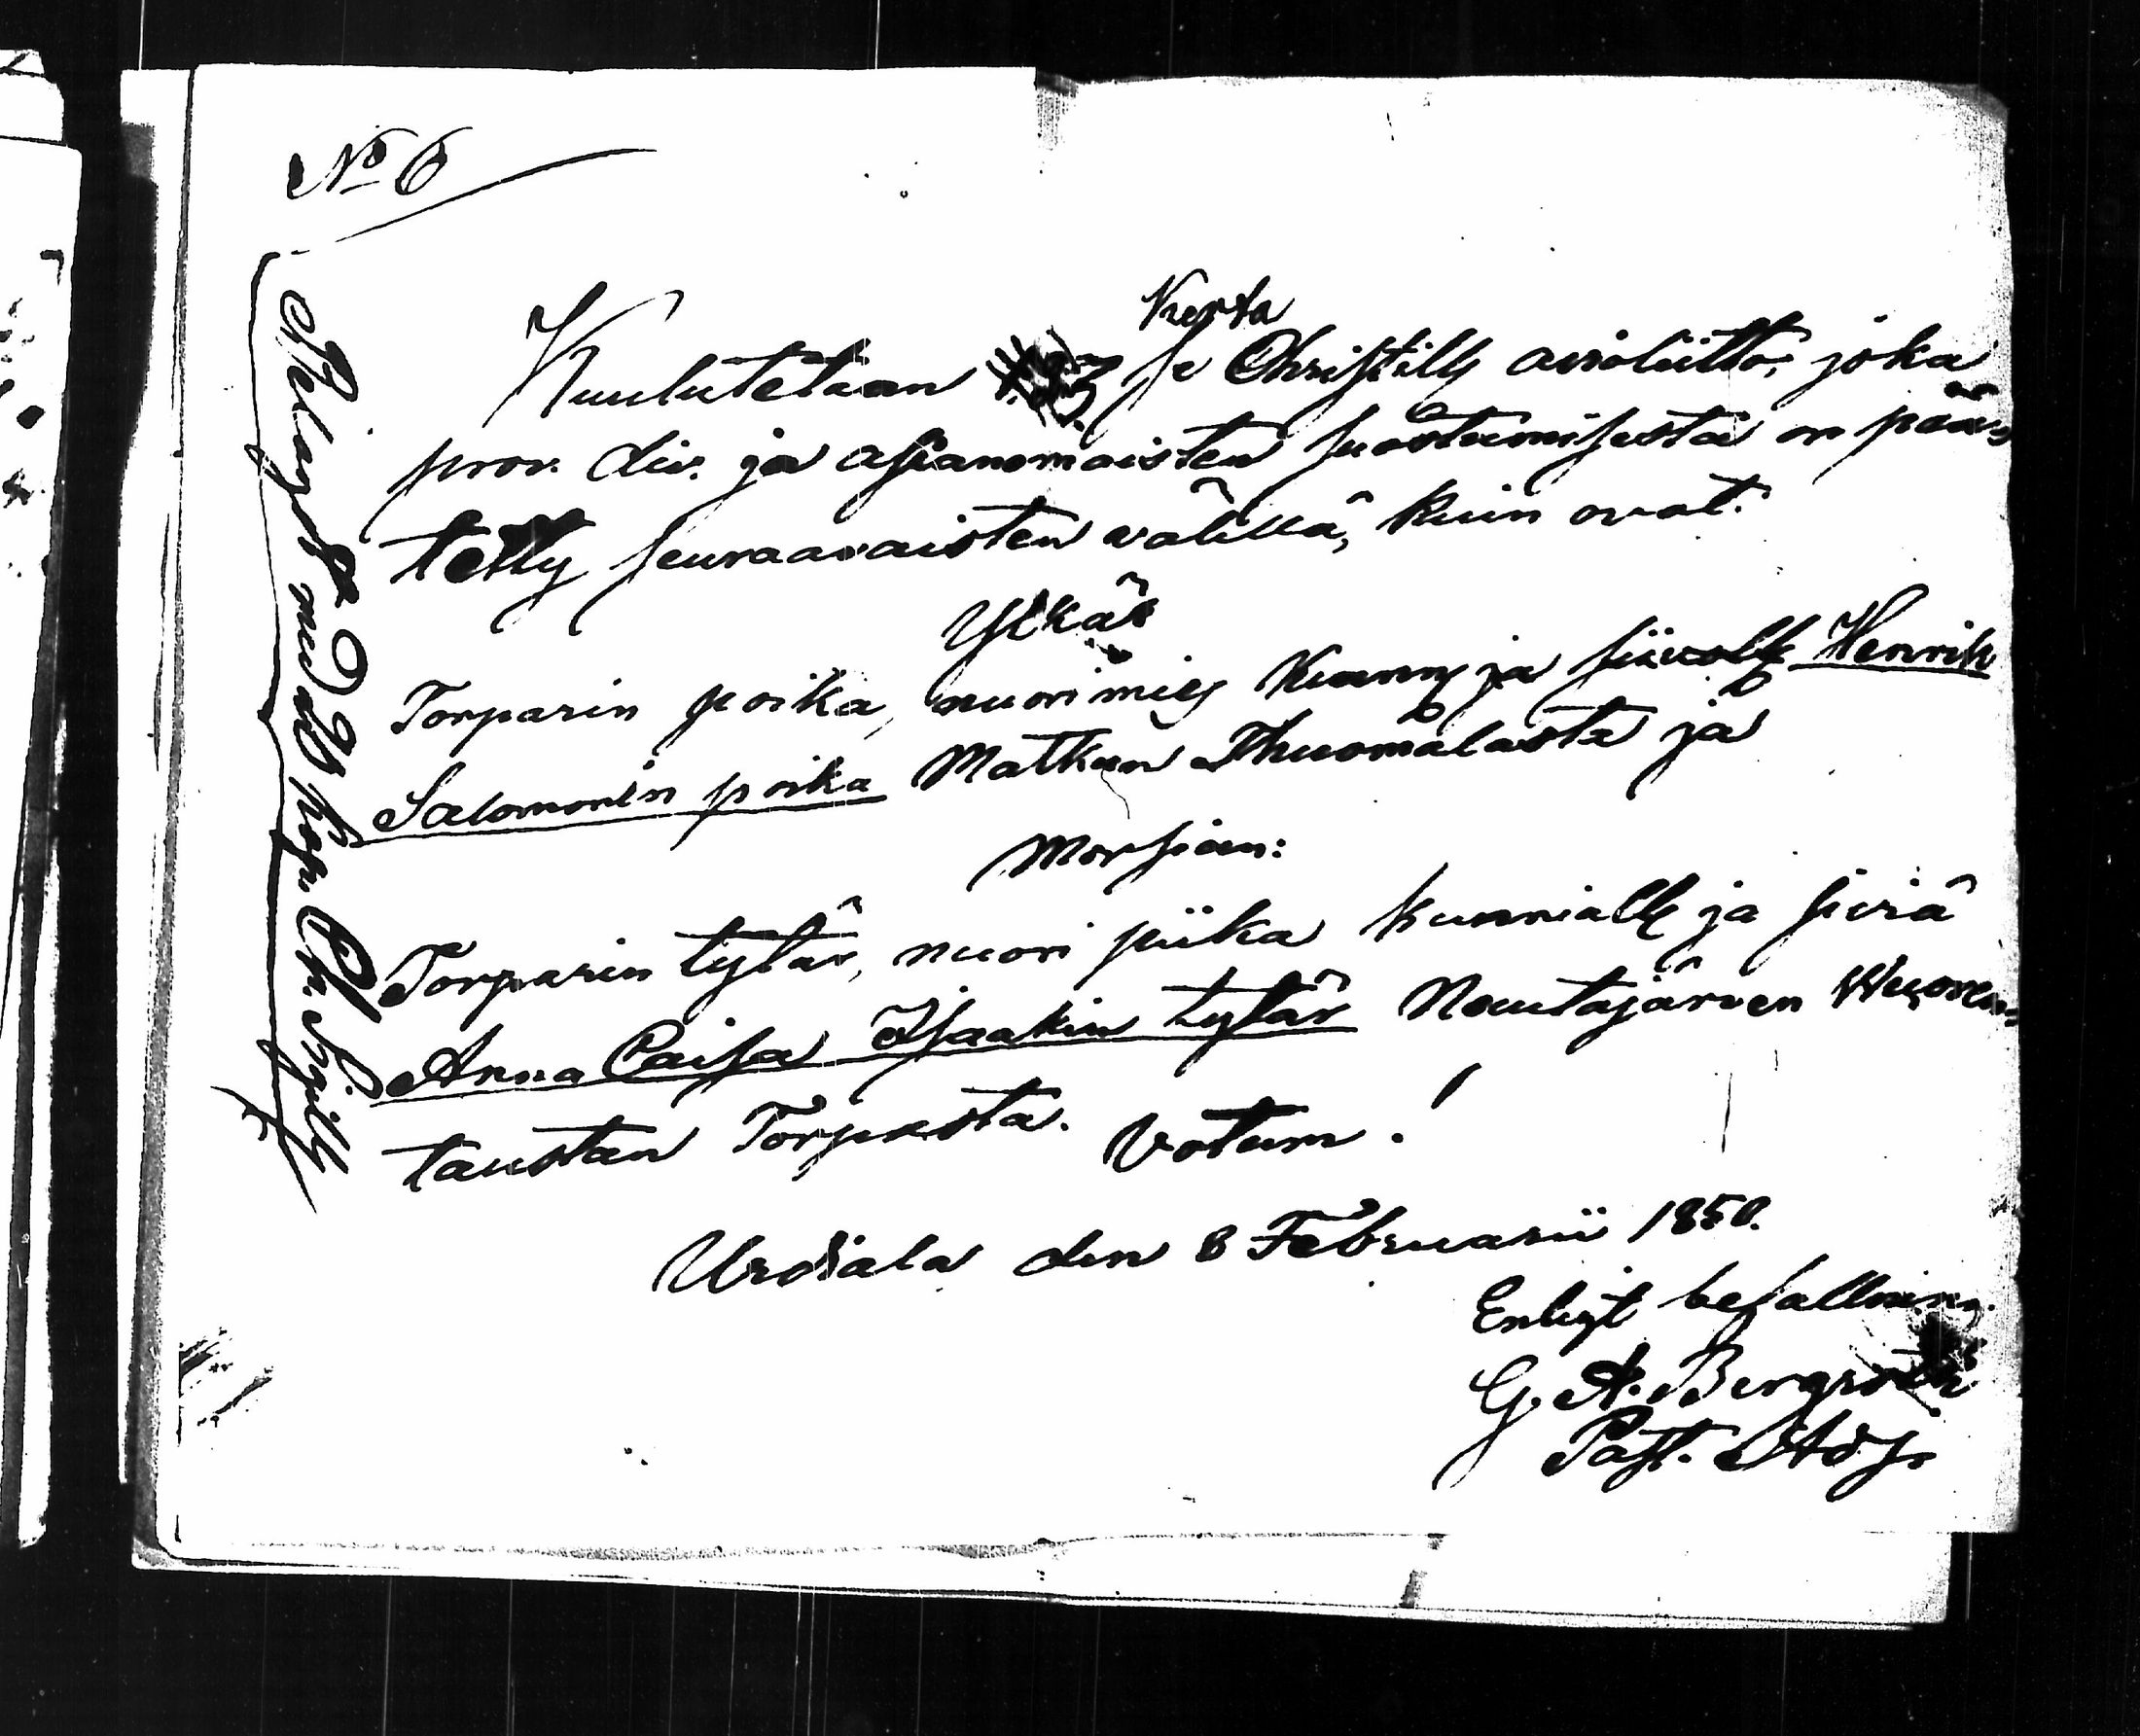 No 6
Kerta
Kuulutetaan 1.2.3 se Christill avioliitto, joka
prov. div. ja asianomaisten suostumisesta on pää-
tetty seuraavaisten välillä, kuin ovat.
Ylkä
Torparin poika, nuori mies kunn ja siivoll Henrik
Salomonin poika Matkun Thuomalasta ja
Morsian:
Torparin tytär, nuori piika kunniall ja siviä
Anna Caisa Isaakin tytär Nuutajärven Wuoren-
taustan Torpasta.
Votum!
Urdiala den 8 Februarii 1850.
Enligt befallning
G. A. Bergroth
Past. Adj.